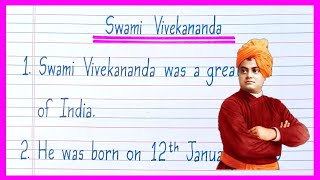 Swami Vivekananda
1. Swami Vivekananda was a grea
of India.
2. He was born on 12th Janua